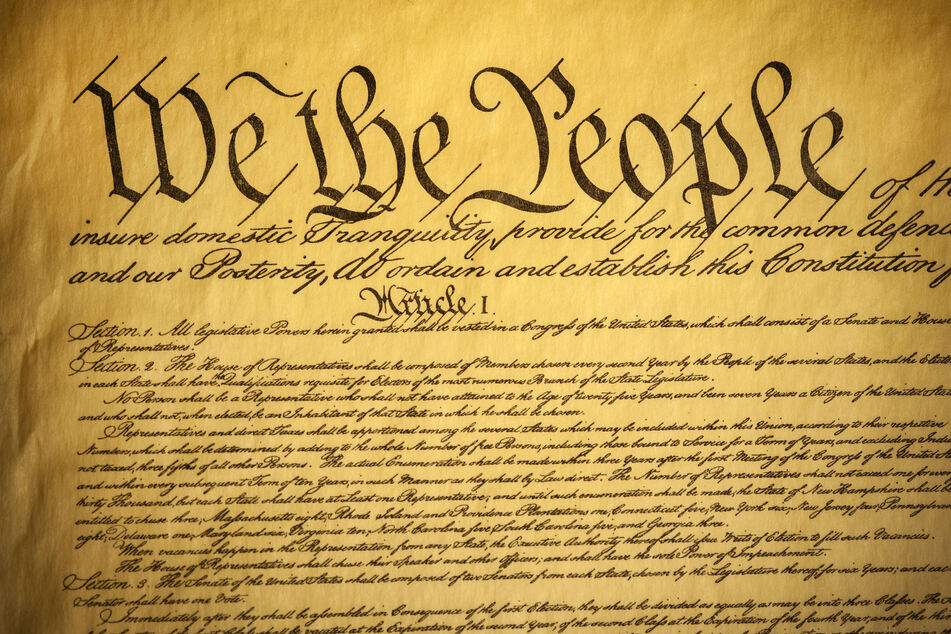 We the People of th
insure domestic Tranquility, provide for the common defenc
and our Posterity, do ordain and establish this Constitution
Article. I.
Section. 1. All legislative Powers herein granted shall be vested in a Congress of the United States, which shall consist of a Senate and House
of Representatives.
Section. 2. The House of Representatives shall be composed of Members chosen every second Year by the People of the several States, and the Elect
in each State shall have the Qualifications requisite for Electors of the most numerous Branch of the State Legislature.
No Person shall be a Representative who shall not have attained to the Age of twenty five Years, and been seven Years a Citizen of the United Stat
and who shall not, when elected, be an Inhabitant of that State in which he shall be chosen.
Representatives and direct Taxes shall be apportioned among the several States which may be included within this Union, according to their respective
Numbers, which shall be determined by adding to the whole Number of free Persons, including those bound to Service for a Term of Years, and excluding India
not taxed, three fifths of all other Persons. The actual Enumeration shall be made within three Years after the first Meeting of the Congress of the United Sta
and within every subsequent Term of ten Years, in such Manner as they shall by Law direct. The Number of Representatives shall not exceed one for eve
thirty Thousand, but each State shall have at Least one Representative; and until such enumeration shall be made, the State of New Hampshire shall be
entitled to chuse three, Massachusetts eight, Rhode Island and Providence Plantations one, Connecticut five, New York six, New Jersey four, Pennsylvani
eight, Delaware one, Maryland six, Virginia ten, North Carolina five, South Carolina five, and Georgia three.
When vacancies happen in the Representation from any State, the Executive Authority thereof shall issue Writs of Election to fill such Vacancies.
The House of Representatives shall chuse their Speaker and other Officers; and shall have the sole Power of Impeachment.
Section. 3. The Senate of the United States shall be composed of two Senators from each State, chosen by the Legislature thereof, for six Years; and eac
Senator shall have one Vote.
Immediately after they shall be assembled in Consequence of the first Election, they shall be divided as equally as may be into three Classes. The
shall be vacated at the Expiration of the second Year, of the second Class at the Expiration of the fourth Year, and of the